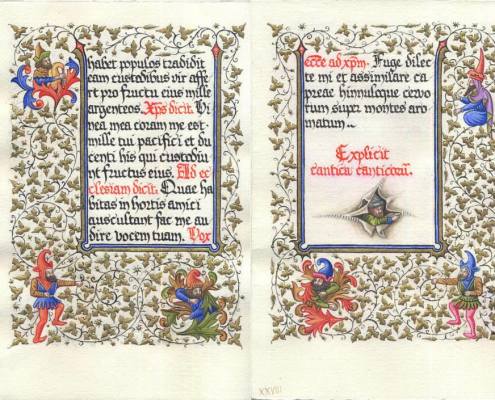 habet populos tradidit
eam custodibus vir affe
rt pro fructu eius mille
argenteos. Xps dicit. Vi
nea mea coram me est
mille tui pacifici et du
centi his qui custodiu
nt fructus eius. Ad ec
clesiam dicit. Quae ha
bitas in hortis amici
auscultant fac me au
dire vocem tuam. Vox
eccƚe ad xpm. Fuge dilec
te mi et assimilare ca
preae hinnuloque cervo
rum super montes aro
matum..
Explicit
cantica canticorū.
XXVIII